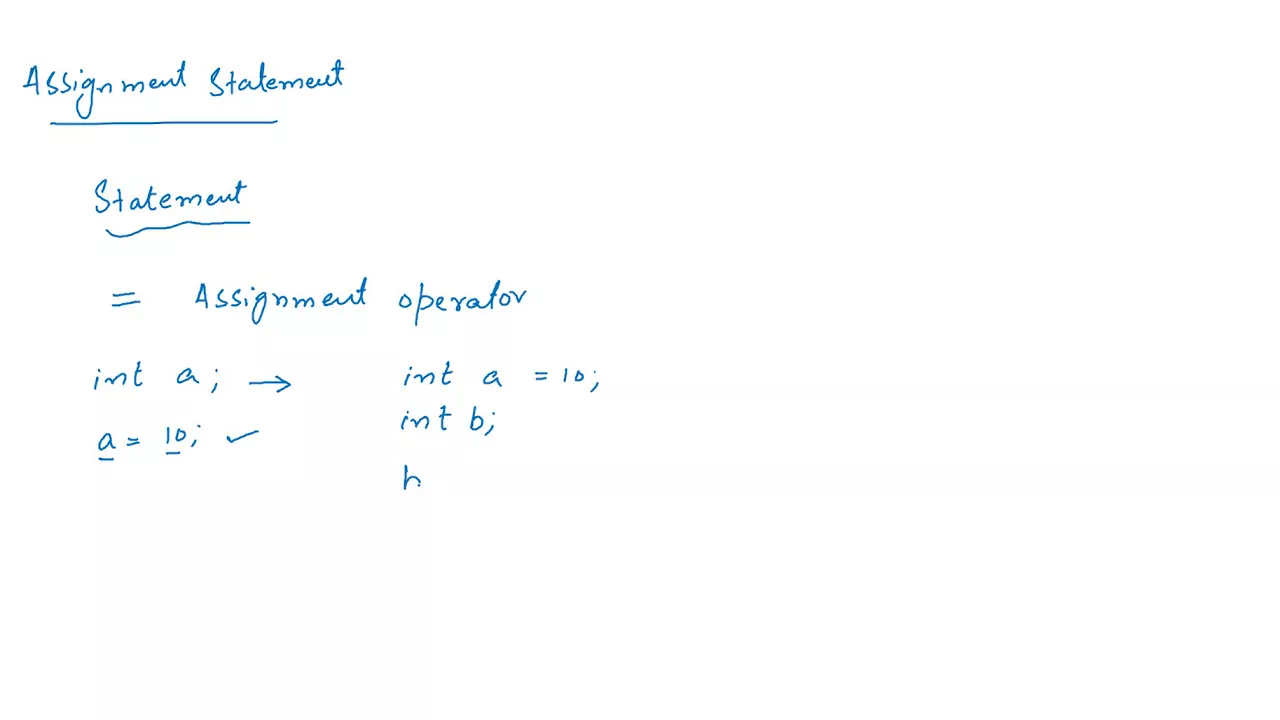 Assignment Statement
Statement
= Assignment operator
int a; →
a = 10; ✓
int a = 10;
int b;